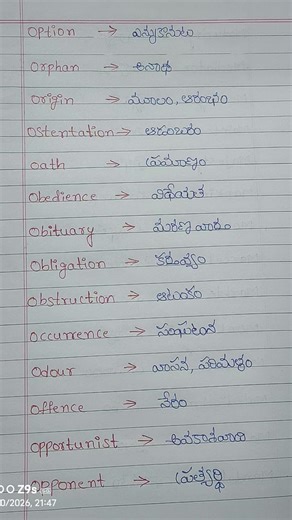 Option → ఎన్నుకొనుట
Orphan → అనాథ
Origin → మూలం, ఆరంభం
Ostentation → ఆడంబరం
Oath → ప్రమాణం
Obedience → విధేయత
Obituary → మరణ వార్త
Obligation → కర్తవ్యం
Obstruction → ఆటంకం
Occurrence → సంఘటన
Odour → వాసన, పరిమళం
Offence → నేరం
Opportunist → అవకాశవాది
Opponent → ప్రత్యర్థి
O Z9s
0/2026, 21:47